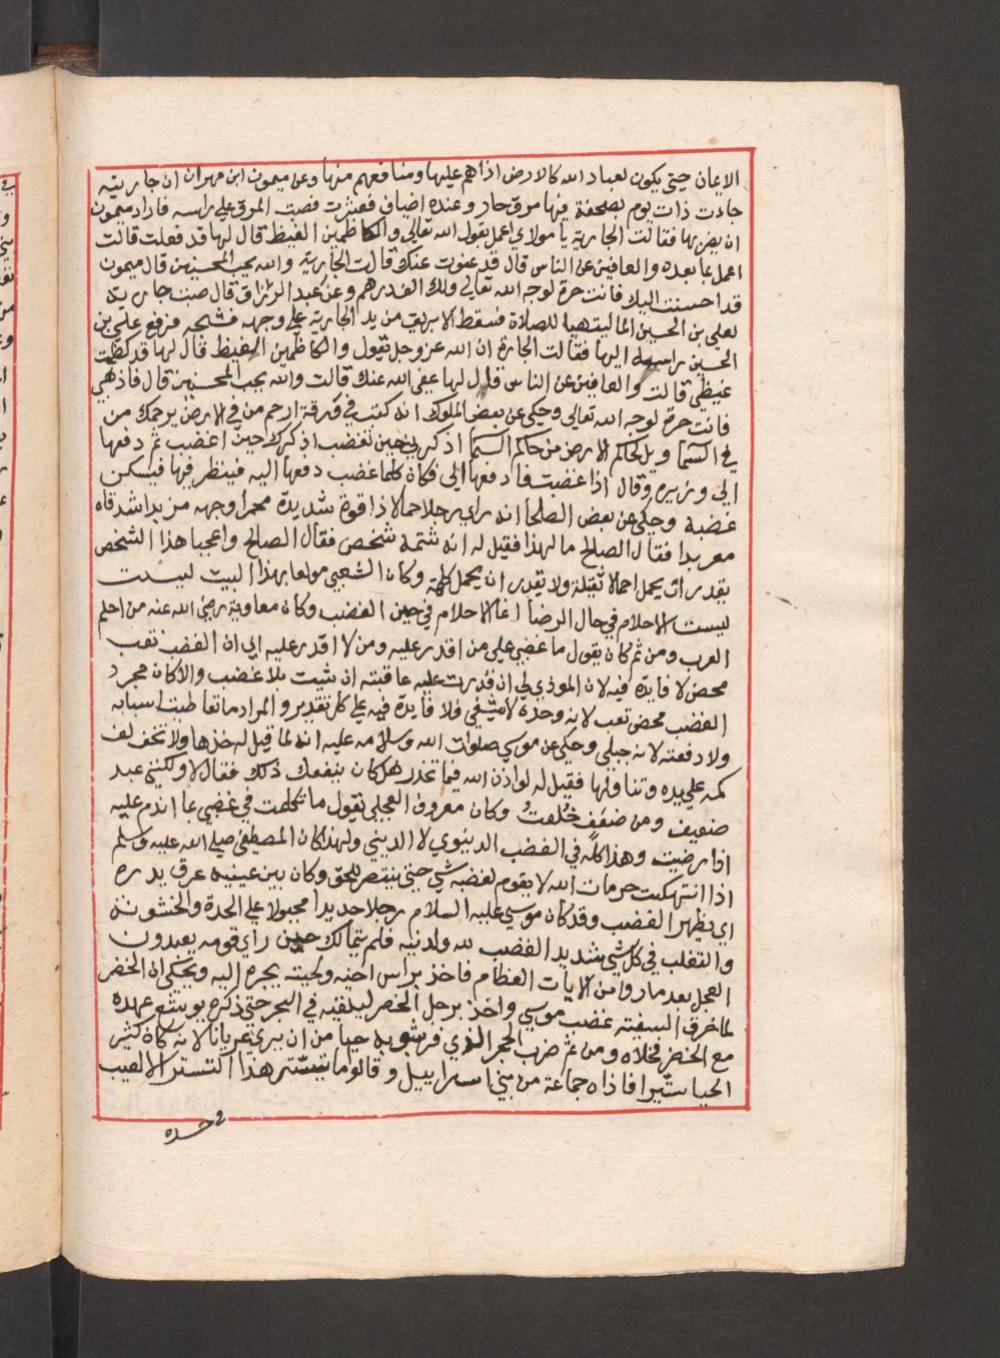 الايمان حتى يكون لعباد الله كالارض اذاهم عليها ومنافعهم منها وعن ميمون ابن مهران ان جاريته
جاءت ذات يوم بصحفة فيها مرق حار وعنده اضياف فعثرت فصبت المرق على راسه فاراد ميمون
ان يضربها فقالت الجارية يا مولاي اعمل بقول الله تعالى والكاظمين الغيظ قال لها قد فعلت قالت
اعمل بما بعده والعافين عن الناس قال قد عفوت عنك قالت الجارية والله يحب المحسنين قال ميمون
قد احسنت اليك فانت حرة لوجه الله تعالى ولك الف درهم وعن عبد الرزاق قال صبت جارية
لعلي بن الحسين الما ليتهيا للصلاة فسقط الابريق من يد الجارية على وجهه فشجه فرفع علي بن
الحسين راسه اليها فقالت الجارة ان الله عز وجل تقول والكاظمين الغيظ قال لها قد كظمت
غيظي قالت والعافين عن الناس قال لها عفى الله عنك قالت والله يحب المحسنين قال فاذهبي
فانت حرة لوجه الله تعالى وحكي عن بعض الملوك انه كتب في ورقة ارحم من في الارض يرحمك من
في السما ويل لحاكم الارض من حاكم السما اذكرني حين تغضب اذكرك حين اغضب ثم دفعها
الى وزيره وقال اذا غضبت فادفعها الي فكان كلما غضب دفعها اليه فينظر فيها فيسكن
غضبه وحكي عن بعض الصلحا انه راى رجلا حمالا ذا قوة شديدة محمرا وجهه مزبدا شدقاه
معربدا فقال الصالح ما لهذا فقيل له انه شتمه شخص فقال الصالح واعجبا هذا الشخص
يقدر ان يحمل احمالا ثقيلة ولا يقدر ان يحمل كلمة وكان الشعبي مولعا بهذا البيت ليست
ليست الاحلام في حال الرضا انما الاحلام في حين الغضب وكان معاوية رضي الله عنه من احلم
العرب ومن ثم كان يقول ما غضبي على من اقدر عليه ومن لا اقدر عليه اي ان الغضب تعب
محض لا فايدة فيه لان الموذي لي ان قدرت عليه عاقبته ان شيت بلا غضب والا كان مجرد
الغضب محض تعب لانه وحده لا يشفي فلا فايدة فيه على كل تقدير والمراد ما تعاطيت اسبابه
ولا دفعته لانه جبلي وحكي عن موسى صلوات الله وسلامه عليه انه لما قيل له خذها ولا تخف لف
كمه على يده وتناولها فقيل له لو اذن الله فيما تحذر هل كان ينفعك ذلك فقال لا ولكني عبد
ضعيف ومن ضعف خلقت وكان معروف العجلي يقول ما تكلمت في غضبي بما اندم عليه
اذا رضيت وهذا كله في الغضب الدنيوي لا الديني ولهذا كان المصطفى صلى الله عليه وسلم
اذا انتهكت حرمات الله لا يقوم لغضبه شي حتى ينتصر للحق وكان بين عينيه عرق يدره
اي يظهر الغضب وقد كان موسى عليه السلام رجلا حديدا مجبولا على الحدة والخشونة
والتغلب في كل شي شديد الغضب لله ولدينه فلم يتمالك حين راى قومه يعبدون
العجل بعد ما راوا من الايات العظام فاخذ براس اخيه ولحيته يجره اليه ويحكى ان الخضر
لما خرق السفينه غضب موسى واخذ برجل الخضر ليلقيه في البحر حتى ذكره يوشع عهده
مع الخضر فخلاه ومن ثم ضرب الحجر الذي فر بثوبه حيا من ان يرى عريانا لانه كان كثير
الحيا ستيرا فاذاه جماعة من بني اسراييل وقالوا ما تيستر هذا التستر الا لعيب